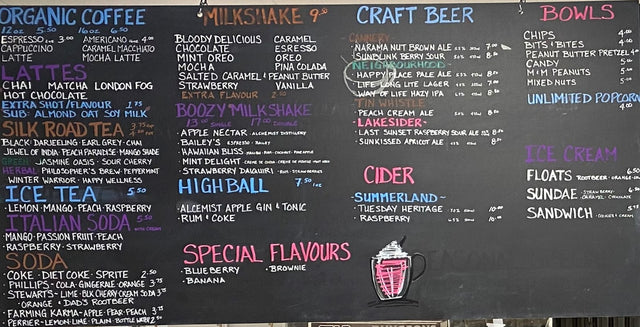 ORGANIC COFFEE
12oz 5.50 16oz 6.50
ESPRESSO 3.00 AMERICANO 4.00
CAPPUCCINO CARAMEL MACCHIATO
LATTE MOCHA LATTE
LATTES
CHAI MATCHA LONDON FOG
HOT CHOCOLATE
EXTRA SHOT/FLAVOUR 1.75
SUB: ALMOND OAT SOY MILK
SILK ROAD TEA 3.75
BLACK: DARJEELING · EARL GREY · CHAI
JEWEL OF INDIA · PEACH PARADISE · MANGO SHADE
GREEN: JASMINE OASIS · SOUR CHERRY
HERBAL: PHILOSOPHER'S BREW · PEPPERMINT
WINTER WARRIOR · HAPPY WELLNESS
ICE TEA 5.50
· LEMON · MANGO · PEACH · RASPBERRY
ITALIAN SODA 5.50
· MANGO · PASSION FRUIT · PEACH
· RASPBERRY · STRAWBERRY
SODA
· COKE · DIET COKE · SPRITE 2.50
· PHILLIPS - COLA · GINGERALE · ORANGE 3.75
· STEWARTS - LIME · BLK CHERRY · CREAM SODA 3.75
· ORANGE & DAD'S ROOTBEER
· FARMING KARMA - APPLE · PEAR · PEACH 3.75
· PERRIER - LEMON · LIME · PLAIN · BOTTLE WATER 2.50
MILKSHAKE 9.50
BLOODY DELICIOUS CARAMEL
CHOCOLATE ESRESSO
MINT OREO OREO
MOCHA PINA COLADA
SALTED CARAMEL PEANUT BUTTER
STRAWBERRY VANILLA
EXTRA FLAVOUR
BOOZY MILKSHAKE
13.00 SINGLE 17.00 DOUBLE
· APPLE NECTAR - ALCHEMIST DISTILLERY
· BAILEY'S - ESPRESSO · BAILEY
· HAWAIIAN BLISS - MALIBU · RUM · COCONUT · PINEAPPLE
· MINT DELIGHT
· STRAWBERRY DAIQUIRI - RUM · STRAWBERRIES
HIGH BALL 7.50 1oz
· ALCEMIST APPLE GIN & TONIC
· RUM & COKE
SPECIAL FLAVOURS
· BLUEBERRY · BROWNIE
· BANANA
CRAFT BEER
CANNERY
· NARAMATA NUT BROWN ALE 7.00
· SUNDUNK BERRY SOUR 8.00
NEIGHBOURHOOD
· HAPPY PLACE PALE ALE
· LIFE LONG LITE LAGER
· WAY OF LIFE HAZY IPA
TIN WHISTLE
· PEACH CREAM ALE
LAKESIDER
· LAST SUNSET RASPBERRY SOUR ALE
· SUNKISSED APRICOT ALE
CIDER
- SUMMERLAND -
· TUESDAY HERITAGE
· RASPBERRY
BOWLS
CHIPS 4.00
BITS & BITES 4.00
PEANUT BUTTER PRETZEL
CANDY
M&M PEANUTS
MIXED NUTS
UNLIMITED POPCORN
ICE CREAM
FLOATS ROOTBEER
SUNDAE - STRAWBERRY
CARAMEL · CHOCOLATE
SANDWICH - COOKIES & CREAM